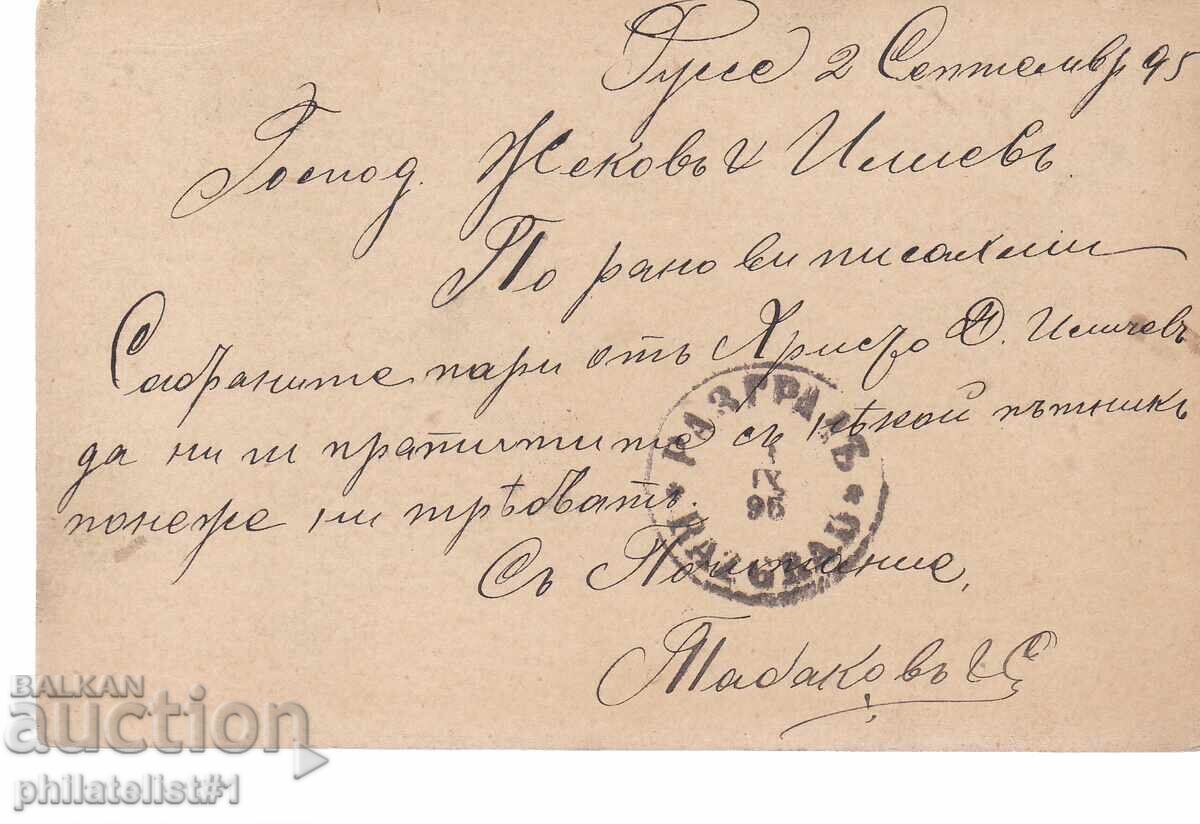 Русе 2 Септемвр 95
Господ. Жековъ & Илиевъ
По рано ви писахми
Сабраните пари отъ Христо Д. Иличевъ
да ни ги пратитите съ нѣкой пътникъ
понеже ни трѣбватъ.
РАЗГРАДЪ
IX
95
RAZGRAD
Съ Почитание,
Табаковъ
BALKAN
auction
philatelist#1